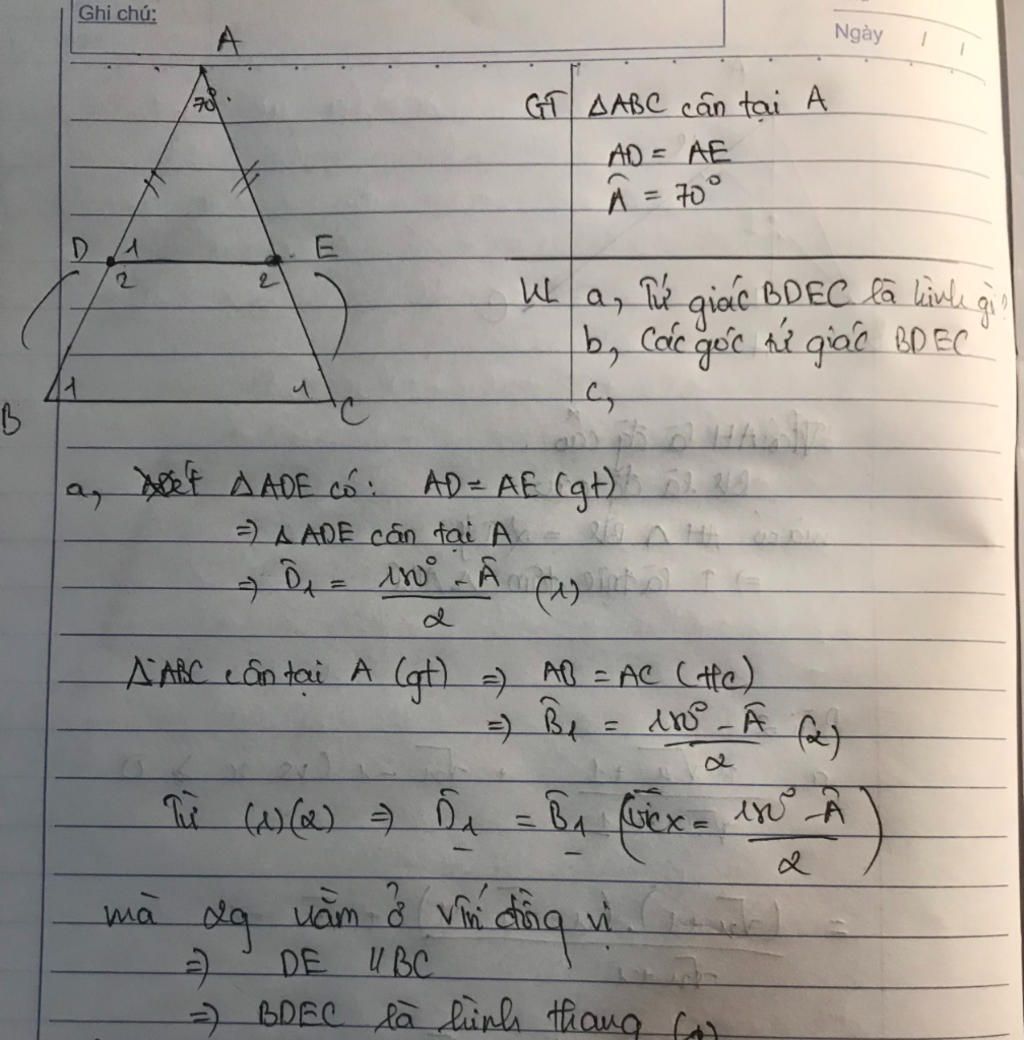 Ghi chú:
Ngày / /
A
70°
D 1 E
2 2
B 1 1 C
GT ΔABC cân tại A
AD = AE
Â = 70°
KL a, Tứ giác BDEC là hình gì?
b, Các góc tứ giác BDEC
c,
a, Xét ΔADE có: AD = AE (gt)
⇒ ΔADE cân tại A
⇒ D̂₁ = (180° - Â)/2 (1)
ΔABC cân tại A (gt) ⇒ AB = AC (t/c)
⇒ B̂₁ = (180° - Â)/2 (2)
Từ (1)(2) ⇒ D̂₁ = B̂₁ (= (180° - Â)/2)
mà 2g nằm ở vị trí đồng vị
⇒ DE // BC
⇒ BDEC là hình thang